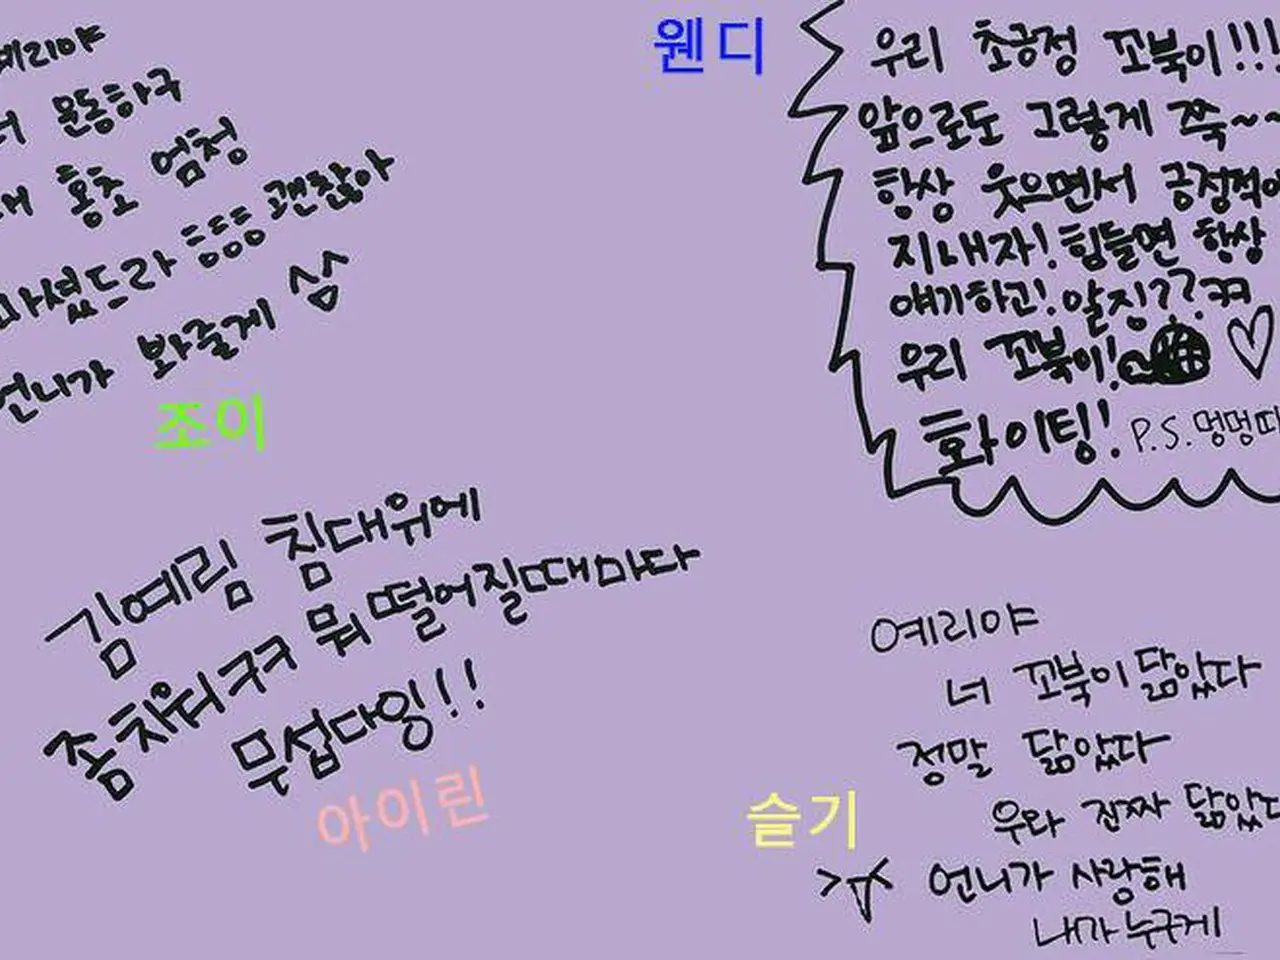 예리야
운동하구
홍초 엄청
마셨드라 흥흥흥 괜찮아
언니가 봐줄게 ^^
조이
웬디
우리 초긍정 꼬북이!!!
앞으로도 그렇게 쭉~~
항상 웃으면서 긍정적이
지내자! 힘들면 항상
얘기하고! 알징?? ㅋㅋ
우리 꼬북이! ♡
화이팅! P.S. 멍멍따
김예림 침대위에
좀치워ㅋㅋ 뭐 떨어질때마다
무섭다잉!!
아이린
예리야
너 꼬북이 닮았다
정말 닮았다
우와 진짜 닮았다
슬기
언니가 사랑해
내가누구게